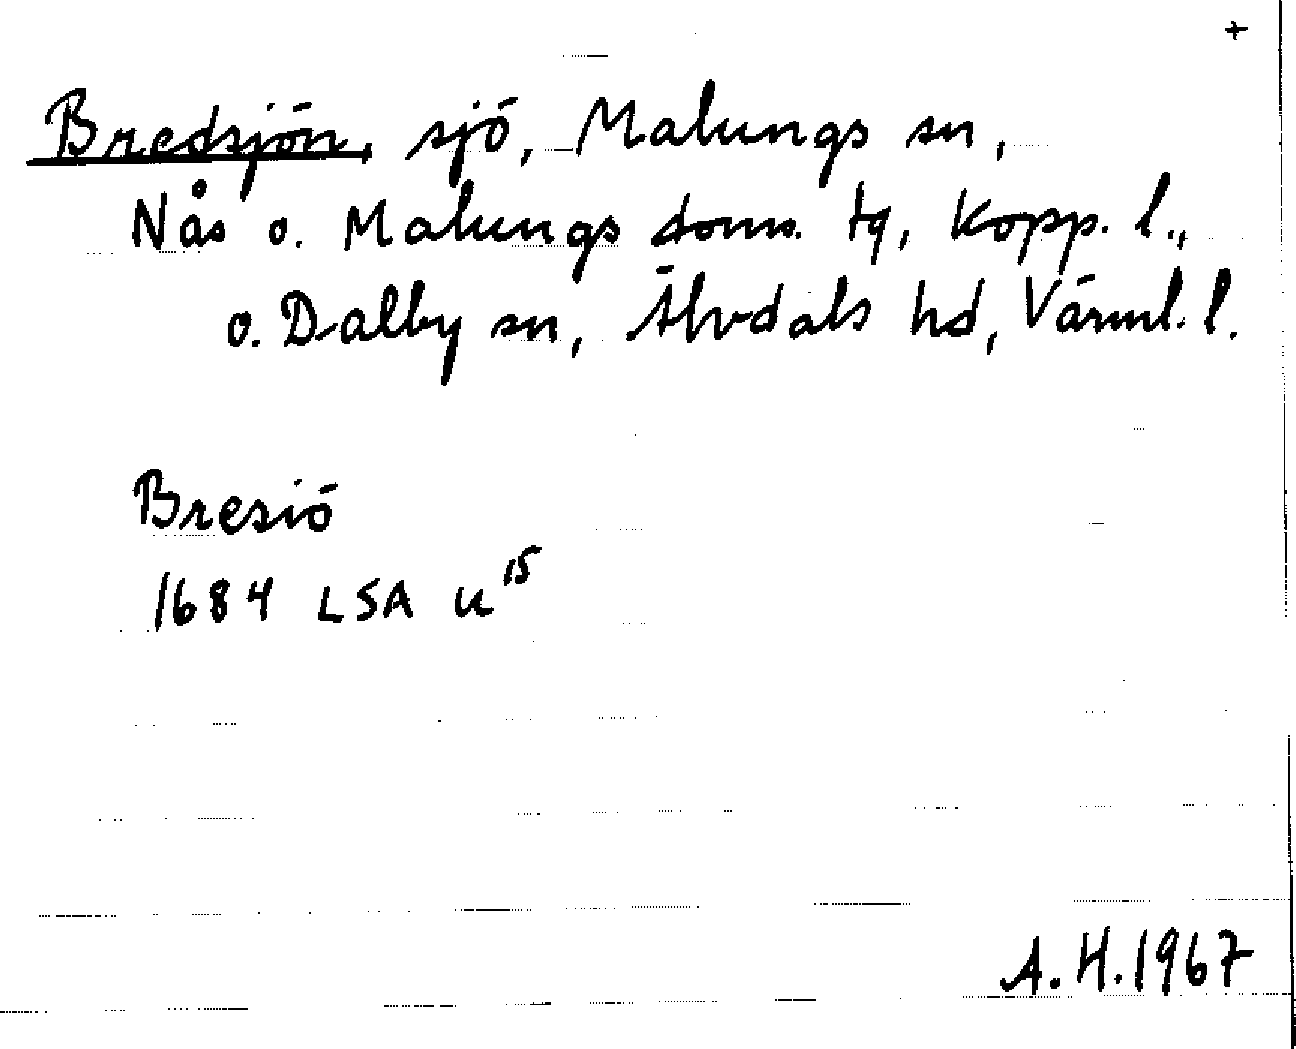 +
Bredsjön, sjö, Malungs sn,
Nås o. Malungs doms. tg, Kopp. l.,
o. Dalby sn, Älvdals hd, Värml. l.
Bresiö
1684 LSA U¹⁵
A.H. 1967